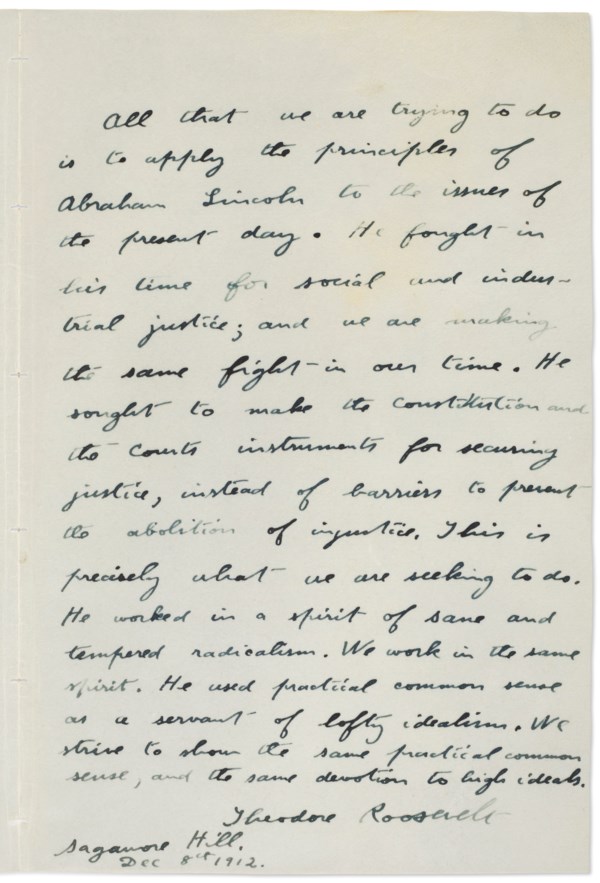 All that we are trying to do
is to apply the principles of
Abraham Lincoln to the issues of
the present day. He fought in
his time for social and indus-
trial justice; and we are making
the same fight in our time. He
sought to make the Constitution and
the Courts instruments for securing
justice, instead of barriers to prevent
the abolition of injustice. This is
precisely what we are seeking to do.
He worked in a spirit of sane and
tempered radicalism. We work in the same
spirit. He used practical common sense
as a servant of lofty idealism. We
strive to show the same practical common
sense, and the same devotion to high ideals.
Theodore Roosevelt
Sagamore Hill.
Dec 8th 1912.